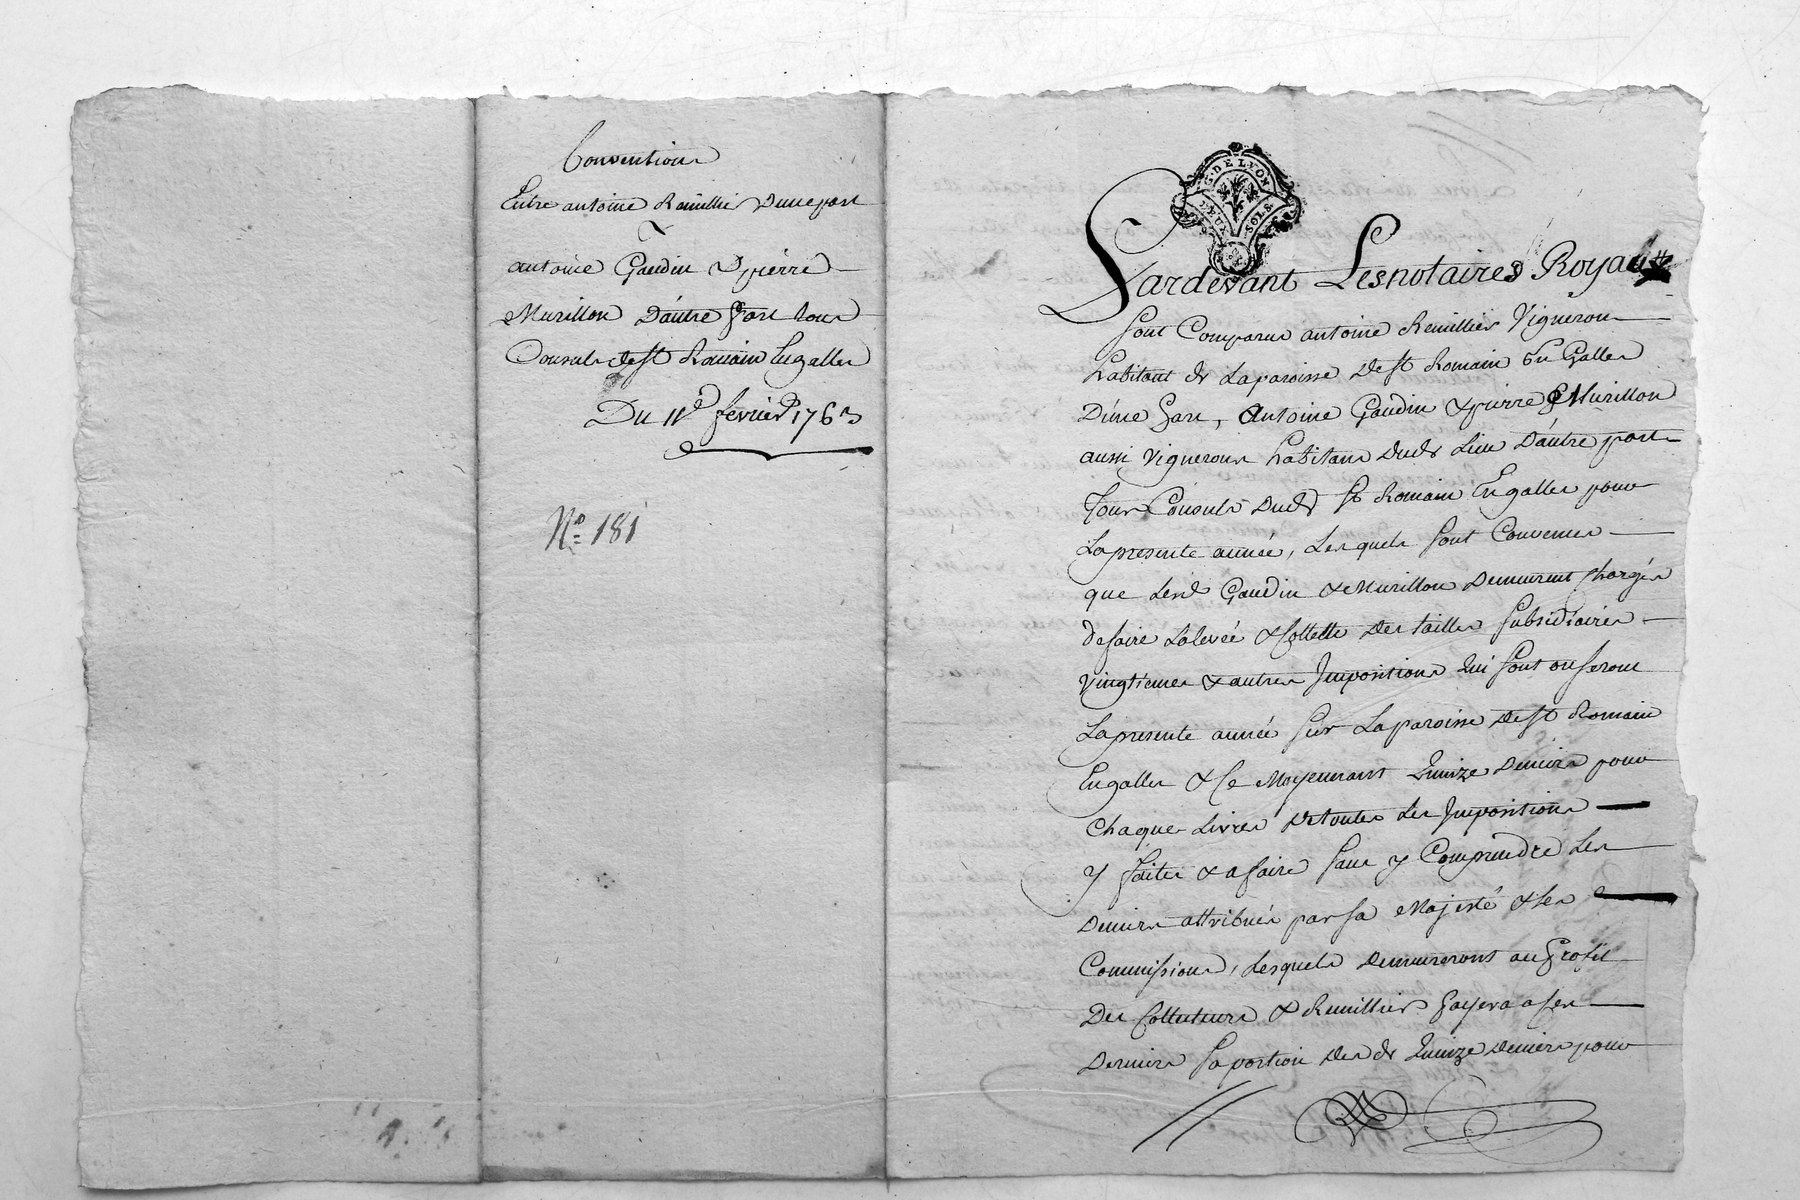 Convention
Entre antoine Remillier D'une part
&
antoine Gaudin & pierre
Murillon D'autre part tous
Consuls de st Romain Engalles
Du 11e fevrier 1763
No 181
G. DE LYON
DEUX SOLS
Pardevant Les notaires Royaux
sont Comparus antoine Remillier Vigneron
habitant de La paroisse de st Romain En Galles
D'une part, Antoine Gaudin & pierre Murillon
aussi vignerons habitans dud. Lieu D'autre part
Tous Consuls dud. st Romain Engalles pour
La presente année, Lesquels sont Convenus
que Lesd. Gaudin & Murillon Demeurent chargés
de faire La levée & Collette des tailles subsidiaires
vingtiemes & autres Impositions qui sont ou seront
La presente année sur La paroisse de st Romain
Engalles & Ce Moyennant Quinze Deniers pour
chaque Livres de toutes Les Impositions
y faites & a faire sans y Comprendre Les
Deniers attribués par sa Majesté & ses
Commissions, Lesquels Demeureront au profit
Des Collecteurs & Remillier payera a ses
Derniers sa portion desd. Quinze deniers pour